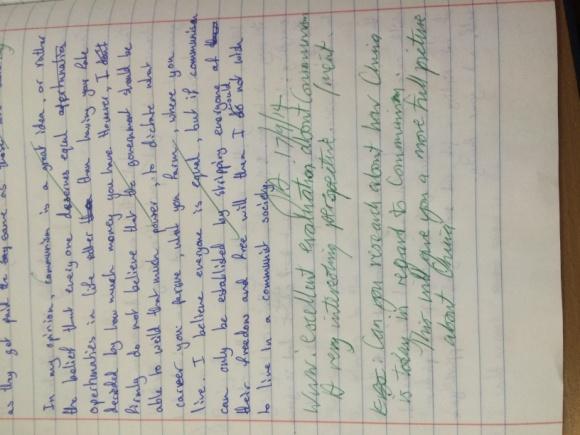 as they got paid the same as
In my opinion, communism is a great idea, or rather
the belief that everyone deserves equal oppertunities
opertunities in life rather than having your fate
decided by how much money you have. However, I don't
firmly do not believe that the government should be
able to weild that much power, to dictate what
career you persue, what you farm, where you
live. I believe everyone is equal, but if communism
can only be established by stripping everyone of
their freedom and free will then I could not wish
to live in a communist society.
17/9/14
WWW: excellent evaluation about Communism
A very interesting perspective.
EBI: Can you research about how China
is today in regard to Communism.
This will give you a more full picture
about China.